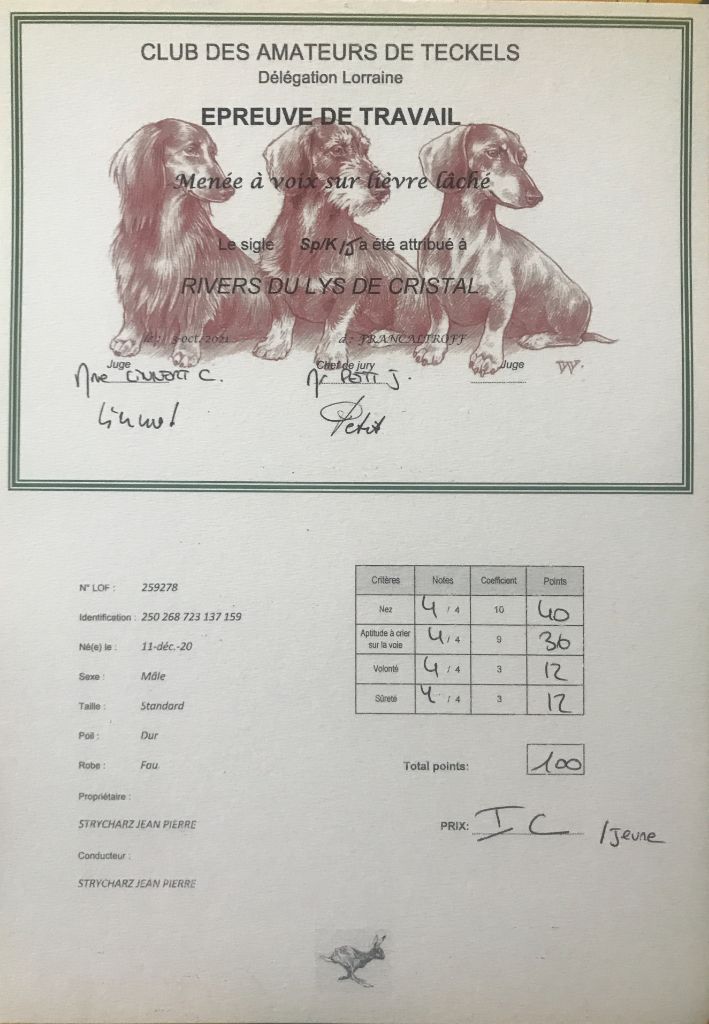 CLUB DES AMATEURS DE TECKELS
Délégation Lorraine
EPREUVE DE TRAVAIL
Menée à voix sur lièvre lâché
Le sigle Sp/K /J a été attribué à
RIVERS DU LYS DE CRISTAL
le : oct. 2021 à : FRANCALTROFF
Juge Chef de jury Juge
Mme C. Mr PETIT J.
Petit
W.
N° LOF : 259278
Identification : 250 268 723 137 159
Né(e) le : 11-déc.-20
Sexe : Mâle
Taille : Standard
Poil : Dur
Robe : Fau.
Propriétaire :
STRYCHARZ JEAN PIERRE
Conducteur :
STRYCHARZ JEAN PIERRE
Critères Notes Coefficient Points
Nez 4 / 4 10 40
Aptitude à crier
sur la voie 4 / 4 9 36
Volonté 4 / 4 3 12
Sûreté 4 / 4 3 12
Total points: 100
PRIX: I C /Jeune